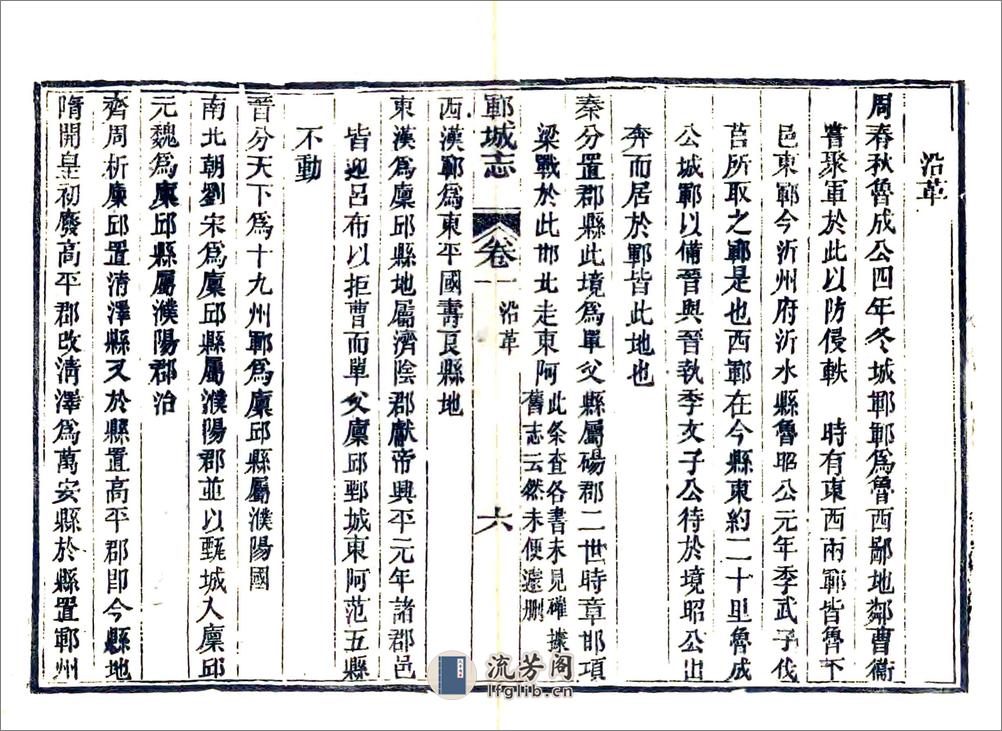 沿革
周春秋魯成公四年冬城鄆鄆為魯西鄙地鄰曹衞
嘗聚軍於此以防侵軼　時有東西兩鄆皆魯下
邑東鄆今沂州府沂水縣魯昭公元年季武子伐
莒所取之鄆是也西鄆在今縣東約二十里魯成
公城鄆以備晉與晉執季文子公待於境昭公出
奔而居於鄆皆此地也
秦分置郡縣此境為單父縣屬碭郡二世時章邯項
梁戰於此邯北走東阿
此条查各書未見確據
舊志云然未便遽刪
鄆城志
卷一
沿革
六
西漢鄆為東平國壽良縣地
東漢為廩邱縣地屬濟陰郡獻帝興平元年諸郡邑
皆迎呂布以拒曹而單父廩邱鄄城東阿范五縣
不動
晉分天下為十九州鄆為廩邱縣屬濮陽國
南北朝劉宋為廩邱縣屬濮陽郡並以甄城入廩邱
元魏為廩邱縣屬濮陽郡治
齊周析廩邱置清澤縣又於縣置高平郡即今縣地
隋開皇初廢高平郡改清澤為萬安縣於縣置鄆州
流芳阁
lfglib.cn